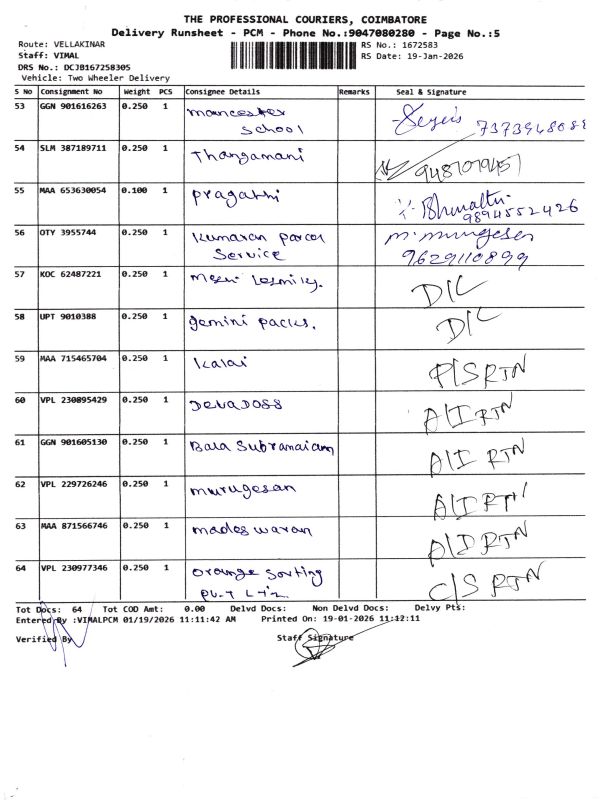 THE PROFESSIONAL COURIERS, COIMBATORE
Delivery Runsheet - PCM - Phone No.:9047080280 - Page No.:5
Route: VELLAKINAR RS No.: 1672583
Staff: VIMAL RS Date: 19-Jan-2026
DRS No.: DCJB167258305
Vehicle: Two Wheeler Delivery
S No Consignment No Weight PCS Consignee Details Remarks Seal & Signature
53 GGN 901616263 0.250 1 Manchester
School
54 SLM 387189711 0.250 1 Thangamani
55 MAA 653630054 0.100 1 Pragathi
9894552426
56 OTY 3955744 0.250 1 Kumaran Parcel M. Murugesan
Service 9629110899
57 KOC 62487221 0.250 1 D/L
58 UPT 9010388 0.250 1 gemini packs. D/L
59 MAA 715465704 0.250 1 Kalai P/S RTN
60 VPL 230895429 0.250 1 DEVADOSS A/I RTN
61 GGN 901605130 0.250 1 Bala Subramaiam A/I RTN
62 VPL 229726246 0.250 1 murugesan A/I RTN
63 MAA 871566746 0.250 1 madeswaran A/D RTN
64 VPL 230977346 0.250 1 Orange Sorting C/S RTN
Pv.t Ltd.
Tot Docs: 64 Tot COD Amt: 0.00 Delvd Docs: Non Delvd Docs: Delvy Pts:
Entered By :VIMALPCM 01/19/2026 11:11:42 AM Printed On: 19-01-2026 11:12:11
Verified By Staff Signature